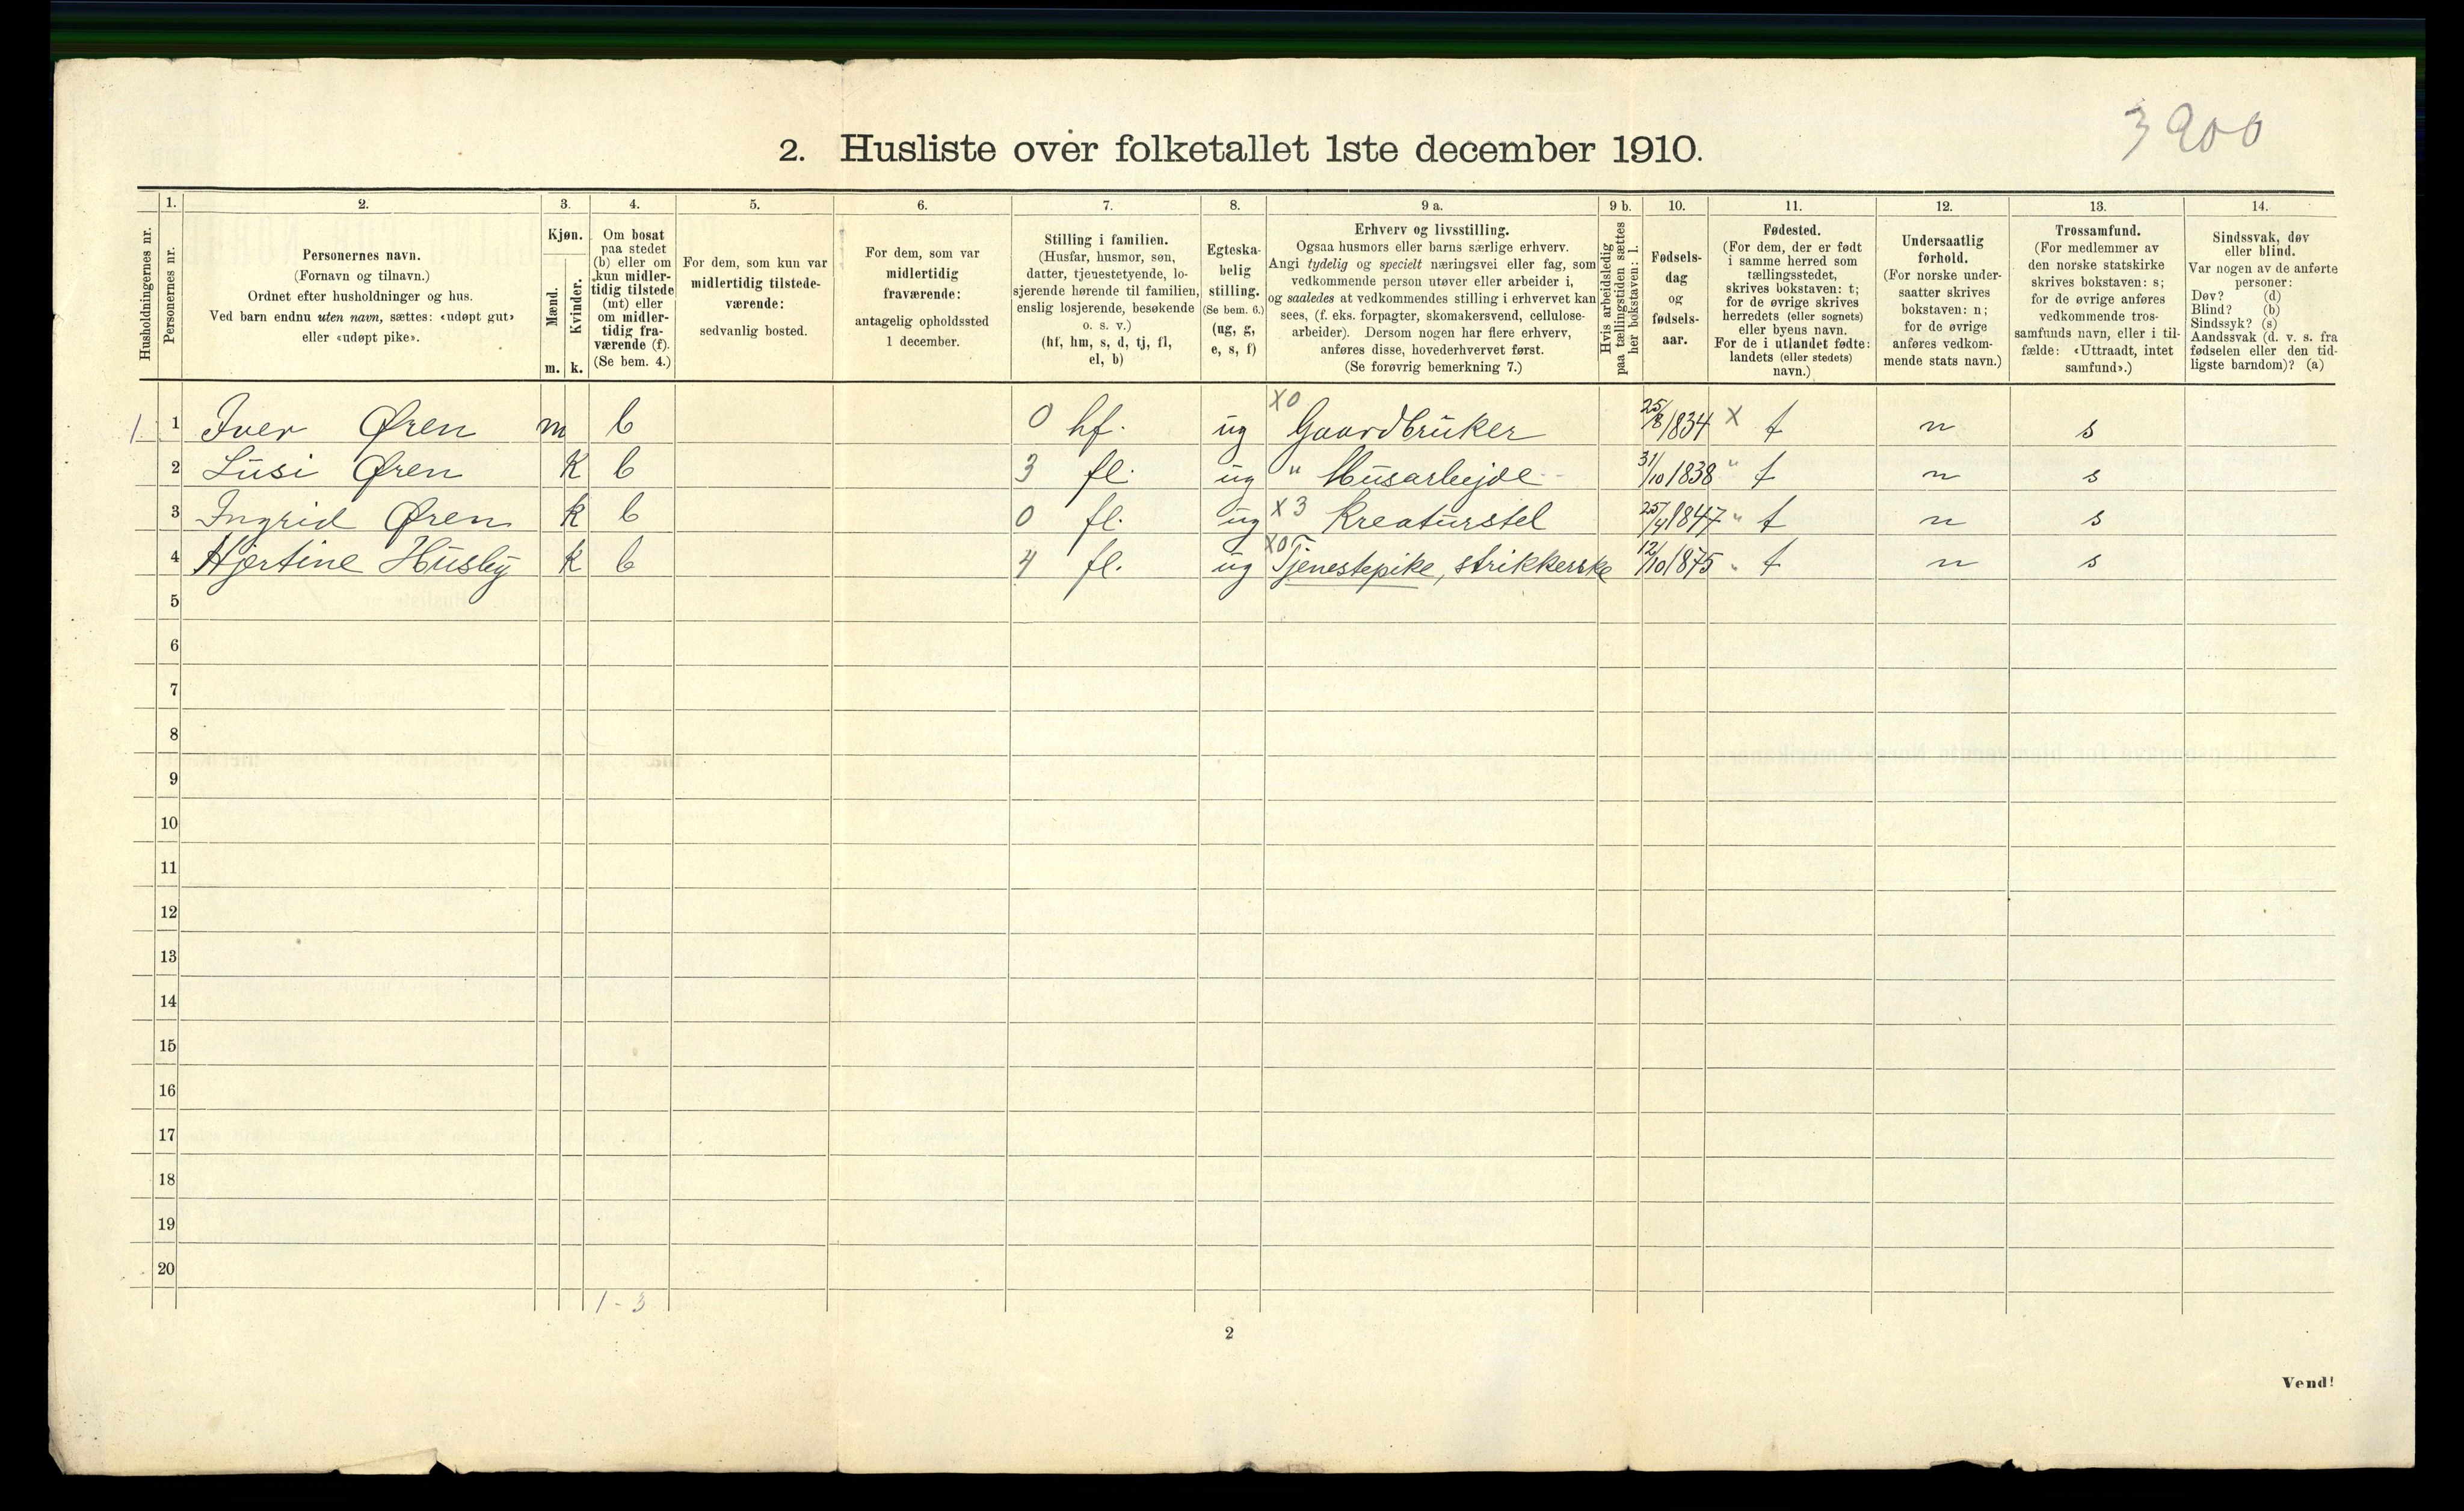 3900
2. Husliste over folketallet 1ste december 1910.
Husholdningernes nr.
1.
Personernes nr.
2.
Personernes navn.
(Fornavn og tilnavn.)
Ordnet efter husholdninger og hus.
Ved barn endnu uten navn, sættes: «udøpt gut»
eller «udøpt pike».
3.
Kjøn.
Mænd.
Kvinder.
m. k.
4.
Om bosat
paa stedet
(b) eller om
kun midler-
tidig tilstede
(mt) eller
om midler-
tidig fra-
værende (f).
(Se bem. 4.)
5.
For dem, som kun var
midlertidig tilstede-
værende:
sedvanlig bosted.
6.
For dem, som var
midlertidig
fraværende:
antagelig opholdssted
1 december.
7.
Stilling i familien.
(Husfar, husmor, søn,
datter, tjenestetyende, lo-
sjerende hørende til familien,
enslig losjerende, besøkende
o. s. v.)
(hf, hm, s, d, tj, fl,
el, b)
8.
Egteska-
belig
stilling.
(Se bem. 6.)
(ug, g,
e, s, f)
9 a.
Erhverv og livsstilling.
Ogsaa husmors eller barns særlige erhverv.
Angi tydelig og specielt næringsvei eller fag, som
vedkommende person utøver eller arbeider i,
og saaledes at vedkommendes stilling i erhvervet kan
sees, (f. eks. forpagter, skomakersvend, cellulose-
arbeider). Dersom nogen har flere erhverv,
anføres disse, hovederhvervet først.
(Se forøvrig bemerkning 7.)
9 b.
Hvis arbeidsledig
paa tællingstiden sættes
her bokstaven: l.
10.
Fødsels-
dag
og
fødsels-
aar.
11.
Fødested.
(For dem, der er født
i samme herred som
tællingsstedet,
skrives bokstaven: t;
for de øvrige skrives
herredets (eller sognets)
eller byens navn.
For de i utlandet fødte:
landets (eller stedets)
navn.)
12.
Undersaatlig
forhold.
(For norske under-
saatter skrives
bokstaven: n;
for de øvrige
anføres vedkom-
mende stats navn.)
13.
Trossamfund.
(For medlemmer av
den norske statskirke
skrives bokstaven: s;
for de øvrige anføres
vedkommende tros-
samfunds navn, eller i til-
fælde: «Uttraadt, intet
samfund».)
14.
Sindssvak, døv
eller blind.
Var nogen av de anførte
personer:
Døv? (d)
Blind? (b)
Sindssyk? (s)
Aandssvak (d. v. s. fra
fødselen eller den tid-
ligste barndom)? (a)
1. 1 Iver Øren m b 0 hf. ug X0 Gaardbruker 25/8 1834 X t n s
2 Lusi Øren k b 3 fl. ug " Husarbejde 31/10 1838 " t n s
3 Ingrid Øren k b 0 fl. ug X3 Kreaturstel 25/4 1847 " t n s
4 Hjertine Husby k b 4 fl. ug X0 Tjenestepike, strikkerske 12/10 1875 " t n s
5
6
7
8
9
10
11
12
13
14
15
16
17
18
19
20
1 - 3
2
Vend!